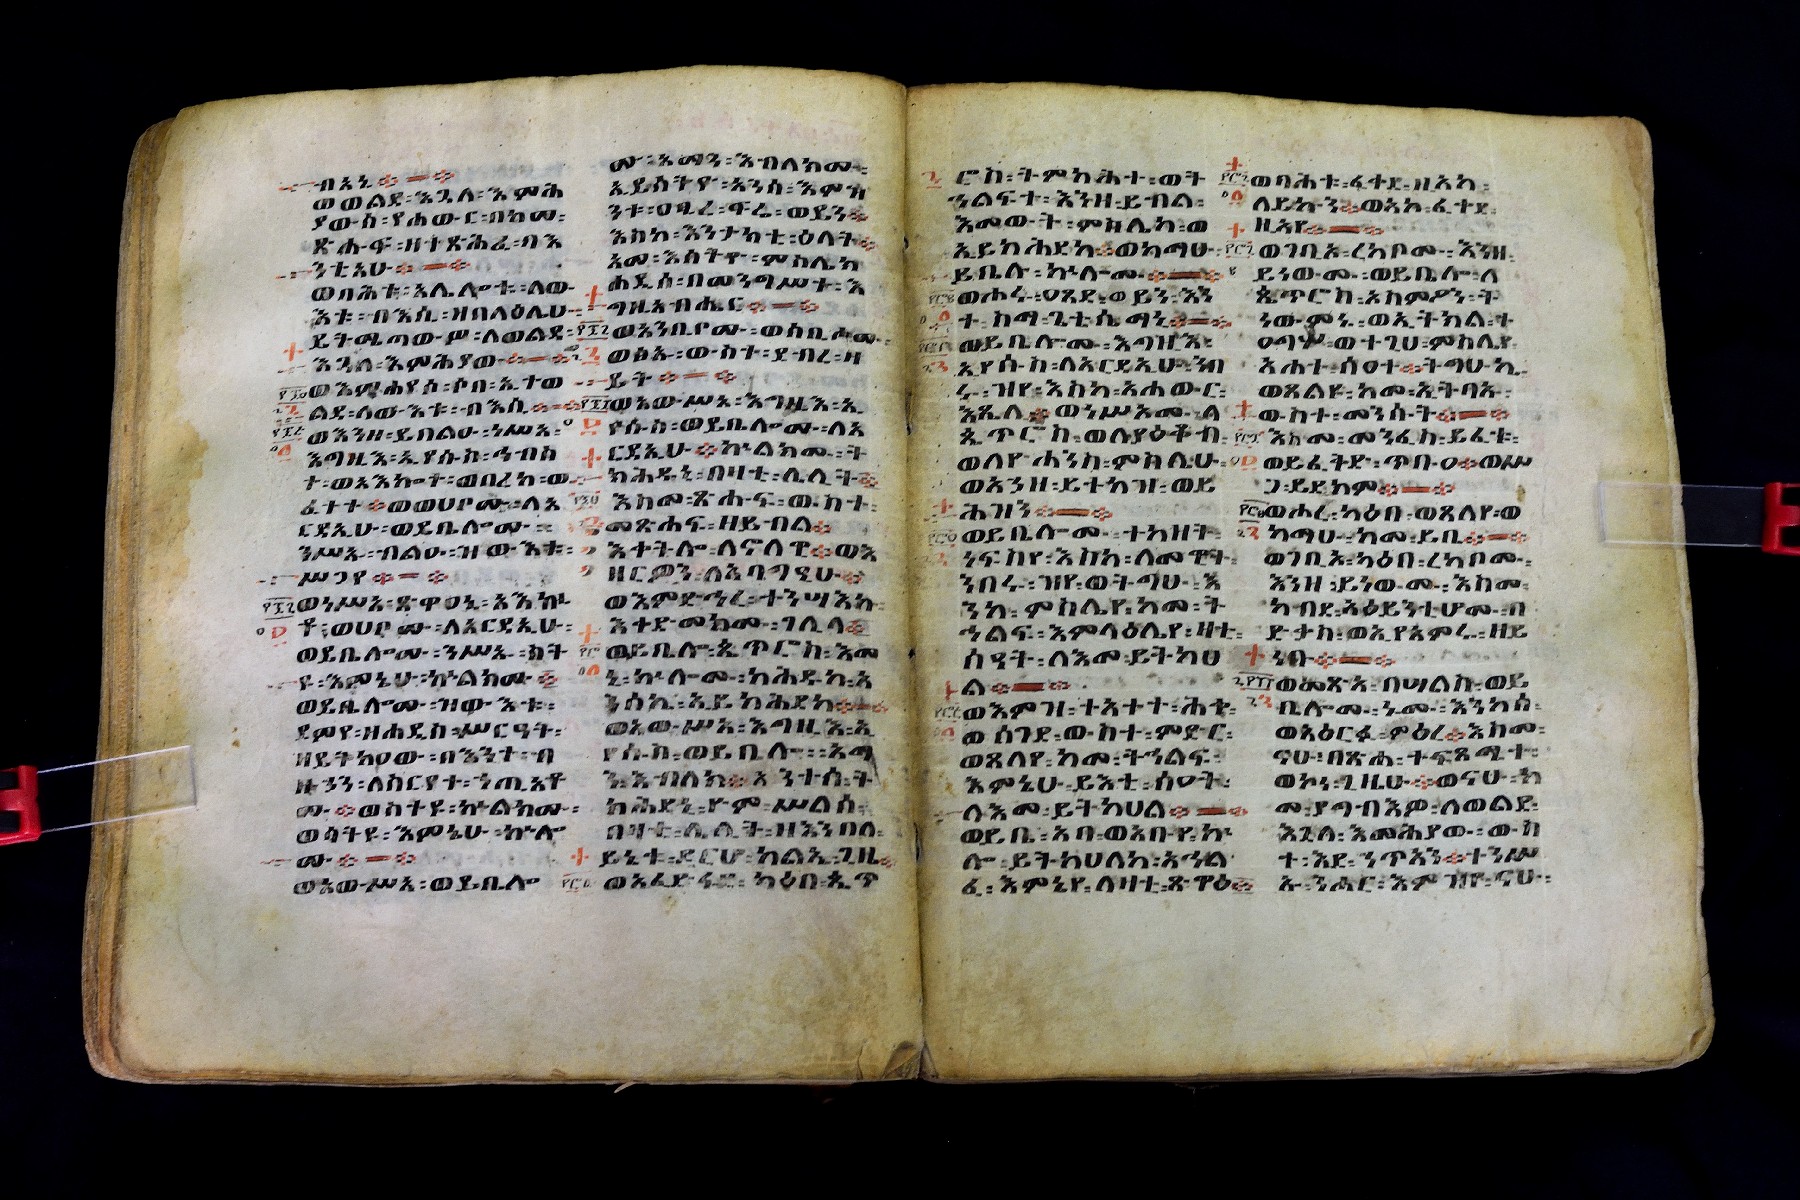 ብእሲ
ወወልደ፡ እጓለ፡ እምሕ
ያው፡ ሰ፡ የሐውር፡ በከመ፡
ጽሑፍ፡ ዘተጽሕፈ፡ በእ
ንቲአሁ
ወባሕቱ፡ አሌ፡ ሎቱ፡ ለው
እቱ፡ ብእሲ፡ ዘበላዕሌሁ
ይትሜጣውዎ፡ ለወልደ፡
እጓለ፡ እምሕያው
ወእምኀየሶ፡ ሶበ፡ ኢተወ
ልደ፡ ለውእቱ፡ ብእሲ
ወእንዘ፡ ይበልዑ፡ ነሥአ፡
እግዚእ፡ ኢየሱስ፡ ኅብስ
ተ፡ ወአእኰተ፡ ወባረከ፡ ወ
ፈተተ፡ ወወሀቦሙ፡ ለአ
ርዳኢሁ፡ ወይቤሎሙ፡
ንሥኡ፡ ብልዑ፡ ዝውእቱ፡
ሥጋየ
ወነሥአ፡ ጽዋዐኒ፡ አእኰ
ተ፡ ወወሀቦሙ፡ ለአርዳኢሁ፡
ወይቤሎሙ፡ ንሥኡ፡ ስት
ዩ፡ እምኔሁ፡ ኵልክሙ
ወይቤሎሙ፡ ዝውእቱ፡
ደምየ፡ ዘሐዲስ፡ ሥርዓት፡
ዘይትከዐው፡ በእንተ፡ ብ
ዙኃን፡ ለስርየተ፡ ኀጢአቶ
ሙ፡ ወሰትዩ፡ ኵልክሙ፡
ወሰትዩ፡ እምኔሁ፡ ኵሎ
ሙ
ወአውሥአ፡ ወይቤሎ
ሙ፡ አማን፡ እብለክሙ፡
ኢይሰትይ፡ እንከ፡ እምዝ
ንቱ፡ ዐጸደ፡ ፍሬ፡ ወይን
እስከ፡ እንታክቲ፡ ዕለት
አመ፡ እሰትዮ፡ ምስሌክ
ሐዲሰ፡ በመንግሥተ፡ እ
ግዚአብሔር
ወአንቢቦሙ፡ ወሰቢሖሙ፡
ወፅኡ፡ ውስተ፡ ደብረ፡ ዘ
ይት
ወአውሥአ፡ እግዚእ፡ ኢ
የሱስ፡ ወይቤሎሙ፡ ለአ
ርዳኢሁ፡ ኵልክሙ፡ ት
ክሕዱኒ፡ በዛቲ፡ ሌሊት
እስመ፡ ጽሑፍ፡ ውስተ፡
መጽሐፍ፡ ዘይብል
እቀትሎ፡ ለኖላዊ፡ ወእ
ዘርዎን፡ ለአባግዒሁ
ወእምድኅረ፡ ተንሣእኩ፡
እቀድመክሙ፡ ገሊላ
ወይቤሎ፡ ጴጥሮስ፡ እመ
ኒ፡ ኵሎሙ፡ ክሕዱከ፡ አ
ንሰኬ፡ ኢይክሕደከ
ወአውሥአ፡ እግዚእ፡ ኢ
የሱስ፡ ወይቤሎ፡ አማ
ን፡ እብለከ፡ አንተሰ፡ ት
ክሕደኒ፡ ዮም፡ ሥልሰ፡
በዛቲ፡ ሌሊት፡ ዘእንበለ፡
ይነቁ፡ ዶርሆ፡ ካልአ፡ ጊዜ
ወአፈድፈደ፡ ካዕበ፡ ጴጥ
ሮስ፡ ትምክሕተ፡ ወት
ኅልፍተ፡ እንዘ፡ ይብል፡
እመውት፡ ምስሌከ፡ ወ
ኢይክሕደከ፡ ወከማሁ፡
ይቤሉ፡ ኵሎሙ
ወሖሩ፡ ዐጸደ፡ ወይን፡ እን
ተ፡ ስማ፡ ጌቴሴማኒ
ወይቤሎሙ፡ እግዚእ፡
ኢየሱስ፡ ለአርዳኢሁ፡ ንበ
ሩ፡ ዝየ፡ እስከ፡ አሐውር፡
እጼሊ፡ ወነሥኦሙ፡ ለ
ጴጥሮስ፡ ወለያዕቆብ፡
ወለዮሐንስ፡ ምስሌሁ፡
ወእንዘ፡ ይተክዝ፡ ወይ
ሕዝን
ወይቤሎሙ፡ ተከዘት፡
ነፍስየ፡ እስከ፡ ለመዊት፡
ንበሩ፡ ዝየ፡ ወትግሁ፡ እ
ንከ፡ ምስሌየ፡ ከመ፡ ት
ኅልፍ፡ እምላዕሌየ፡ ዛቲ፡
ሰዓት፡ ለእመ፡ ይትከሀ
ል
ወእምዝ፡ ተአተተ፡ ሕቀ፡
ወሰገደ፡ ውስተ፡ ምድር፡
ወጸለየ፡ ከመ፡ ትኅልፍ፡
እምኔሁ፡ ይእቲ፡ ሰዓት፡
ለእመ፡ ይትከሀል
ወይቤ፡ አባ፡ ወአቡየ፡ ኵ
ሎ፡ ይትከሀለከ፡ አኅል
ፎ፡ እምኔየ፡ ለዛቲ፡ ጽዋዕ
ወባሕቱ፡ ፈቃደ፡ ዚአከ፡
ለይኩን፡ ወአኮ፡ ፈቃደ፡
ዚአየ
ወገብአ፡ ረከቦሙ፡ እንዘ፡
ይነውሙ፡ ወይቤሎ፡ ለ
ጴጥሮስ፡ አስምዖን፡ ት
ነውምኑ፡ ወኢትክል፡ ተ
ዐግሦ፡ ወተጊሀ፡ ምስሌየ፡
አሐተ፡ ሰዐተ፡ ትግሁ፡ ኬ
ወጸልዩ፡ ከመ፡ ኢትባኡ፡
ውስተ፡ መንሱት
እስመ፡ መንፈስ፡ ይፈቱ፡
ወይፈትድ፡ ጥቡዕ፡ ወሥ
ጋ፡ ይደክም
ወሖረ፡ ካዕበ፡ ወጸለየ፡ ወ
ከማሁ፡ ከመ፡ ይቤ
ወገብአ፡ ካዕበ፡ ረከቦሙ፡
እንዘ፡ ይነውሙ፡ እስመ፡
ክቡድ፡ አዕይንቲሆሙ፡ በ
ድቃስ፡ ወኢየአምሩ፡ ዘይ
ነቡ
ወመጽአ፡ በሣልስ፡ ወይ
ቤሎሙ፡ ኑሙ፡ እንከሰ፡
ወአዕርፉ፡ ምዕረ፡ እስመ፡
ናሁ፡ በጽሐ፡ ተፍጻሜተ፡
ወኮነ፡ ጊዜሁ፡ ወናሁ፡ ከ
መ፡ ያግብእዎ፡ ለወልደ፡
እጓለ፡ እመሕያው፡ ውስ
ተ፡ እደ፡ ኃጥአን፡ ተንሥ
ኡ፡ ንሖር፡ እምዝየ፡ ናሁ፡